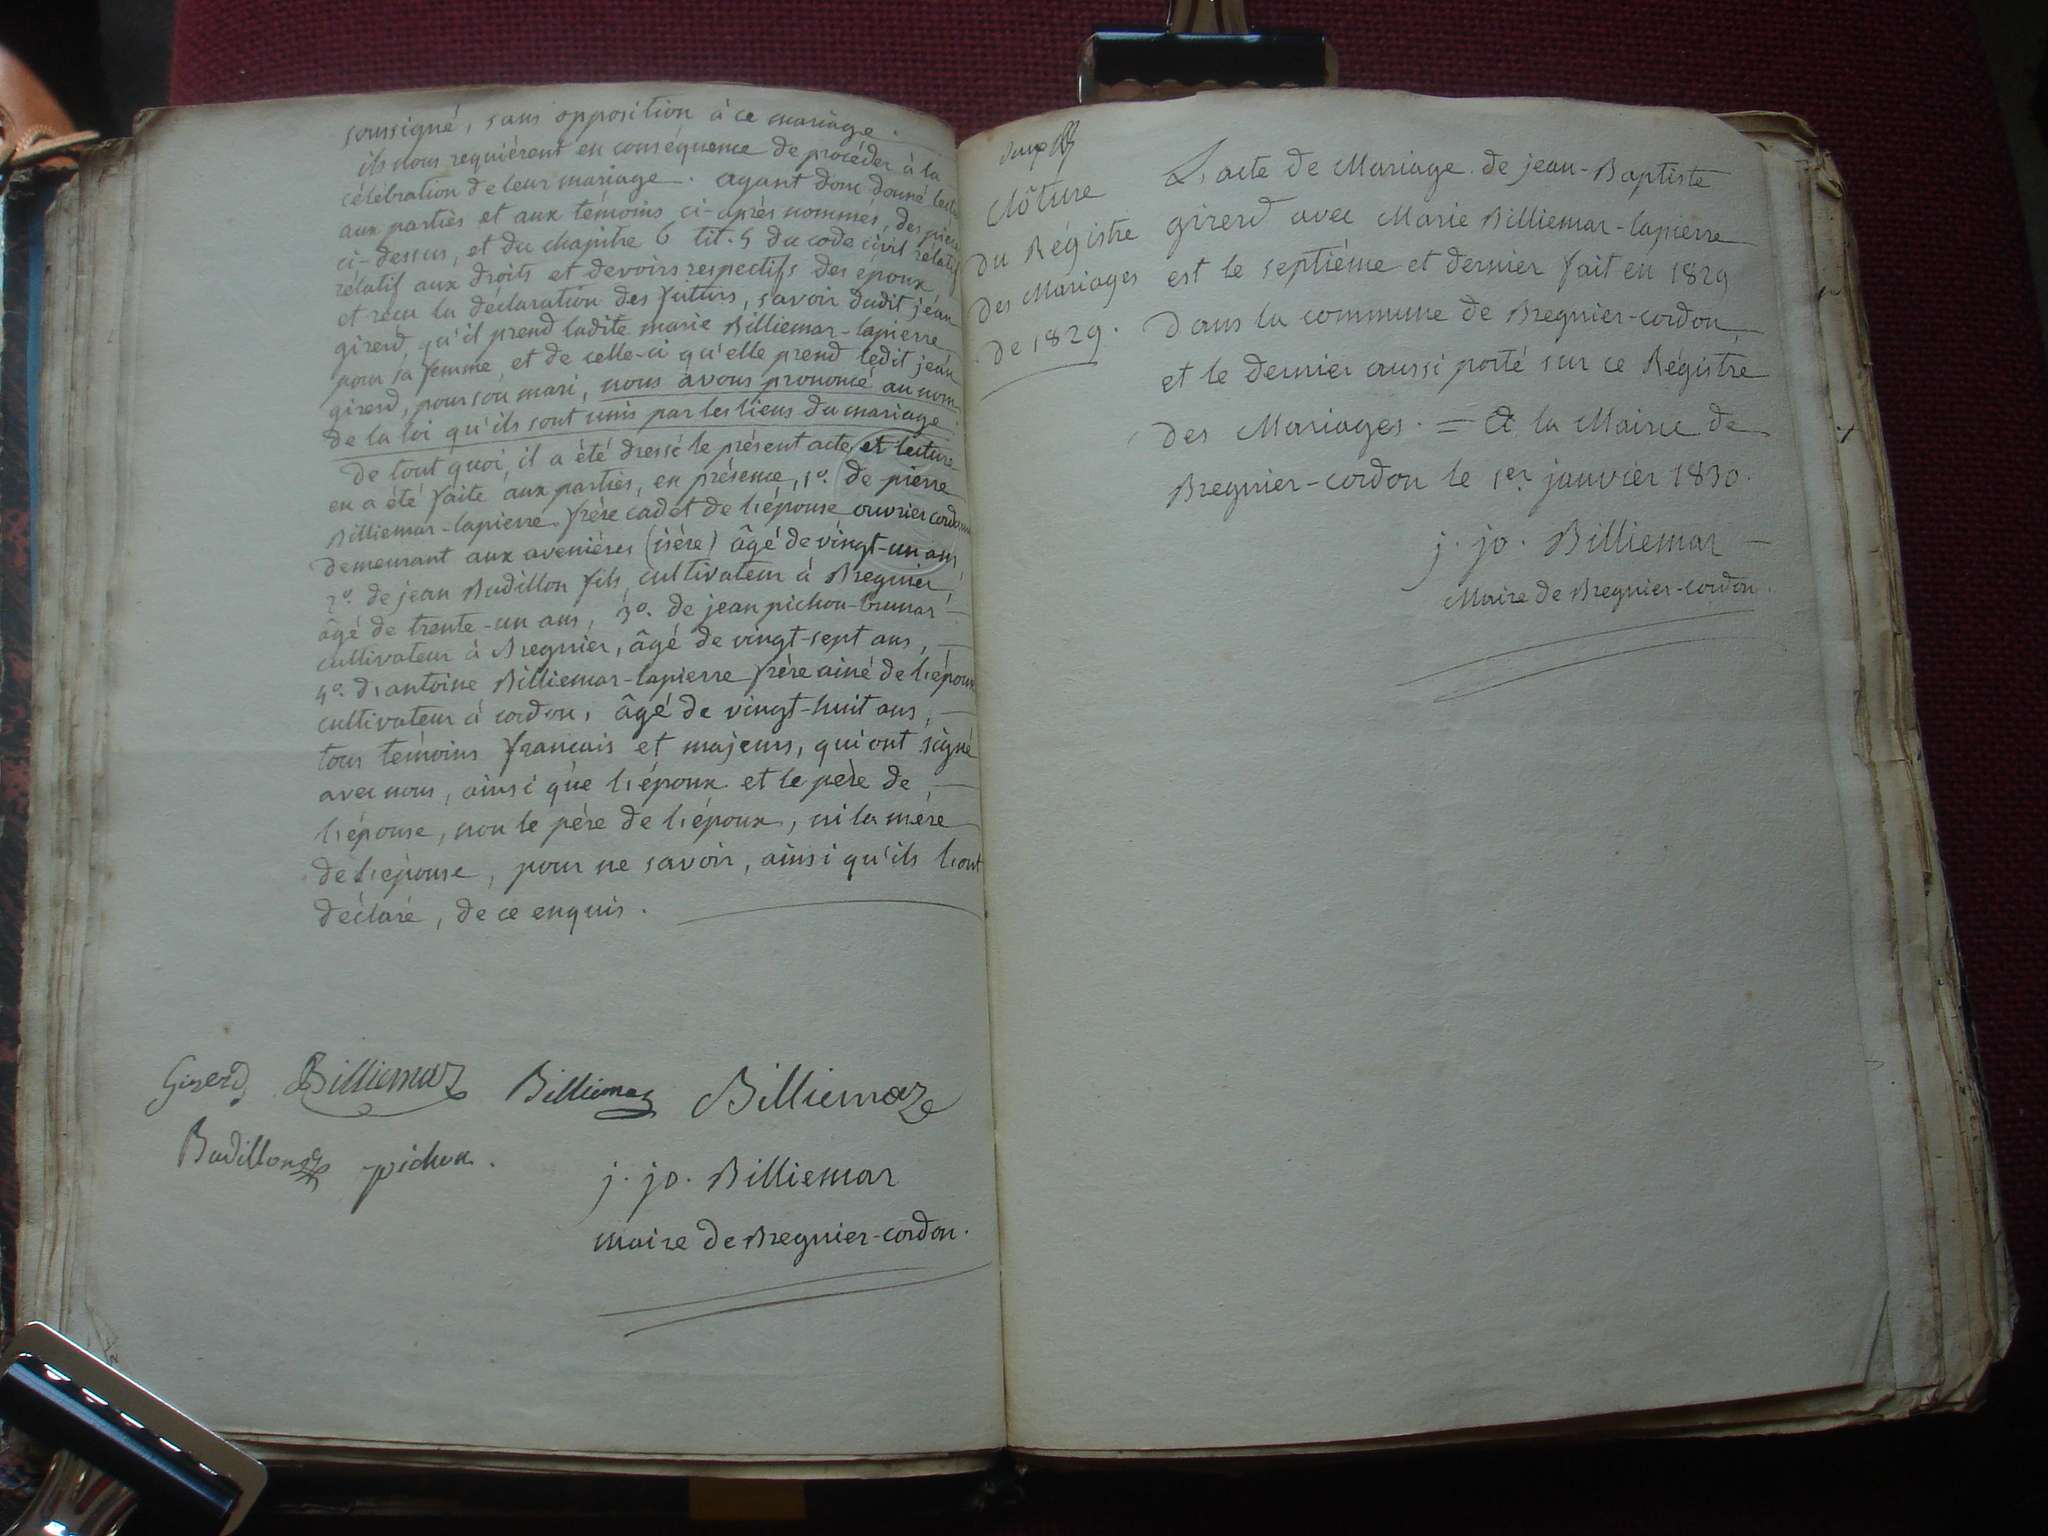 soussigné, sans opposition à ce mariage.
ils nous requiérent en conséquence de procéder à la
célébration de leur mariage. ayant donc donné
aux parties et aux témoins ci-après nommés, des
ci-dessus, et du chapitre 6 tit. 5 du code civil rélatif
rélatif aux droits et devoirs respectifs des époux,
et reçu la déclaration des futurs, savoir dudit jean
girerd, qu'il prend ladite marie Billiemaz-lapierre
pour sa femme, et de celle-ci qu'elle prend ledit jean
girerd, pour son mari, nous avons prononcé au nom
de la loi qu'ils sont unis par les liens du mariage.
De tout quoi, il a été dressé le présent acte, et lecture
en a été faite aux parties, en présence, 1o. de pierre
Billiemaz-lapierre frère cadet de l'épouse ouvrier
demeurant aux avenières (isère) âgé de vingt-un ans,
2o. de jean Badillon fils, cultivateur à Bregnier,
âgé de trente-un ans, 3o. de jean pichon-brunar
cultivateur à Bregnier, âgé de vingt-sept ans,
4o. d'antoine Billiemaz-lapierre frère ainé de l'épouse
cultivateur à cordon, âgé de vingt-huit ans,
tous témoins français et majeurs, qui ont signé
avec nous, ainsi que l'époux et le père de
l'épouse, non le père de l'époux, ni la mère
de l'épouse, pour ne savoir, ainsi qu'ils l'ont
déclaré, de ce enquis.
Girerd Billiemaz Billiemaz Billiemaze
Badillon pichon.
j. jo. Billiemaz
maire de Bregnier-cordon.
Clôture
du Régistre
des Mariages
de 1829.
L'acte de Mariage de jean-Baptiste
girerd avec Marie Billiemaz-lapierre
est le septiéme et dernier fait en 1829
dans la commune de Bregnier-cordon,
et le dernier aussi porté sur ce Régistre
des Mariages. = A la Mairie de
Bregnier-cordon le 1er janvier 1830.
j. jo. Billiemaz
Maire de Bregnier-cordon.